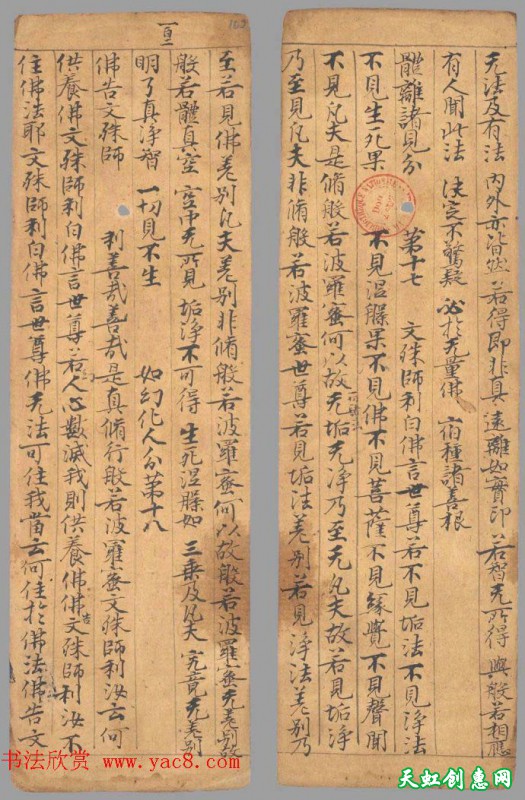 无法及有法 内外亦皆然 若得即非真 遠離如實印 若智无所得 與般若相應
有人聞此法 决定不驚疑 必於无量佛 宿種諸善根
體離諸見分 第十七 文殊師利白佛言世尊若不見垢法不見淨法
不見生死果 不見涅槃果不見佛不見菩薩不見緣覺不見聲聞
不見凡夫是脩般若波羅蜜何以故无垢无淨乃至无凡夫故若見垢淨
乃至見凡夫非脩般若波羅蜜世尊若見垢法差别若見淨法差别乃
至若見佛差别凡夫差别非脩般若波羅蜜何以故般若波羅蜜无差别故
般若體真空 空中无所見 垢淨不可得 生死涅槃如 三乘及凡夫 究竟无差别
明了真淨智 一切見不生 如幻化人分第十八
佛告文殊師 利善哉善哉是真脩行般若波羅蜜文殊師利汝云何
供養佛文殊師利白佛言世尊若人心數滅我則供養佛佛告文殊師利汝不
住佛法耶文殊師利白佛言世尊佛无法可住我當云何住於佛法佛告文
书法欣赏 www.yac8.com
天虹创意网